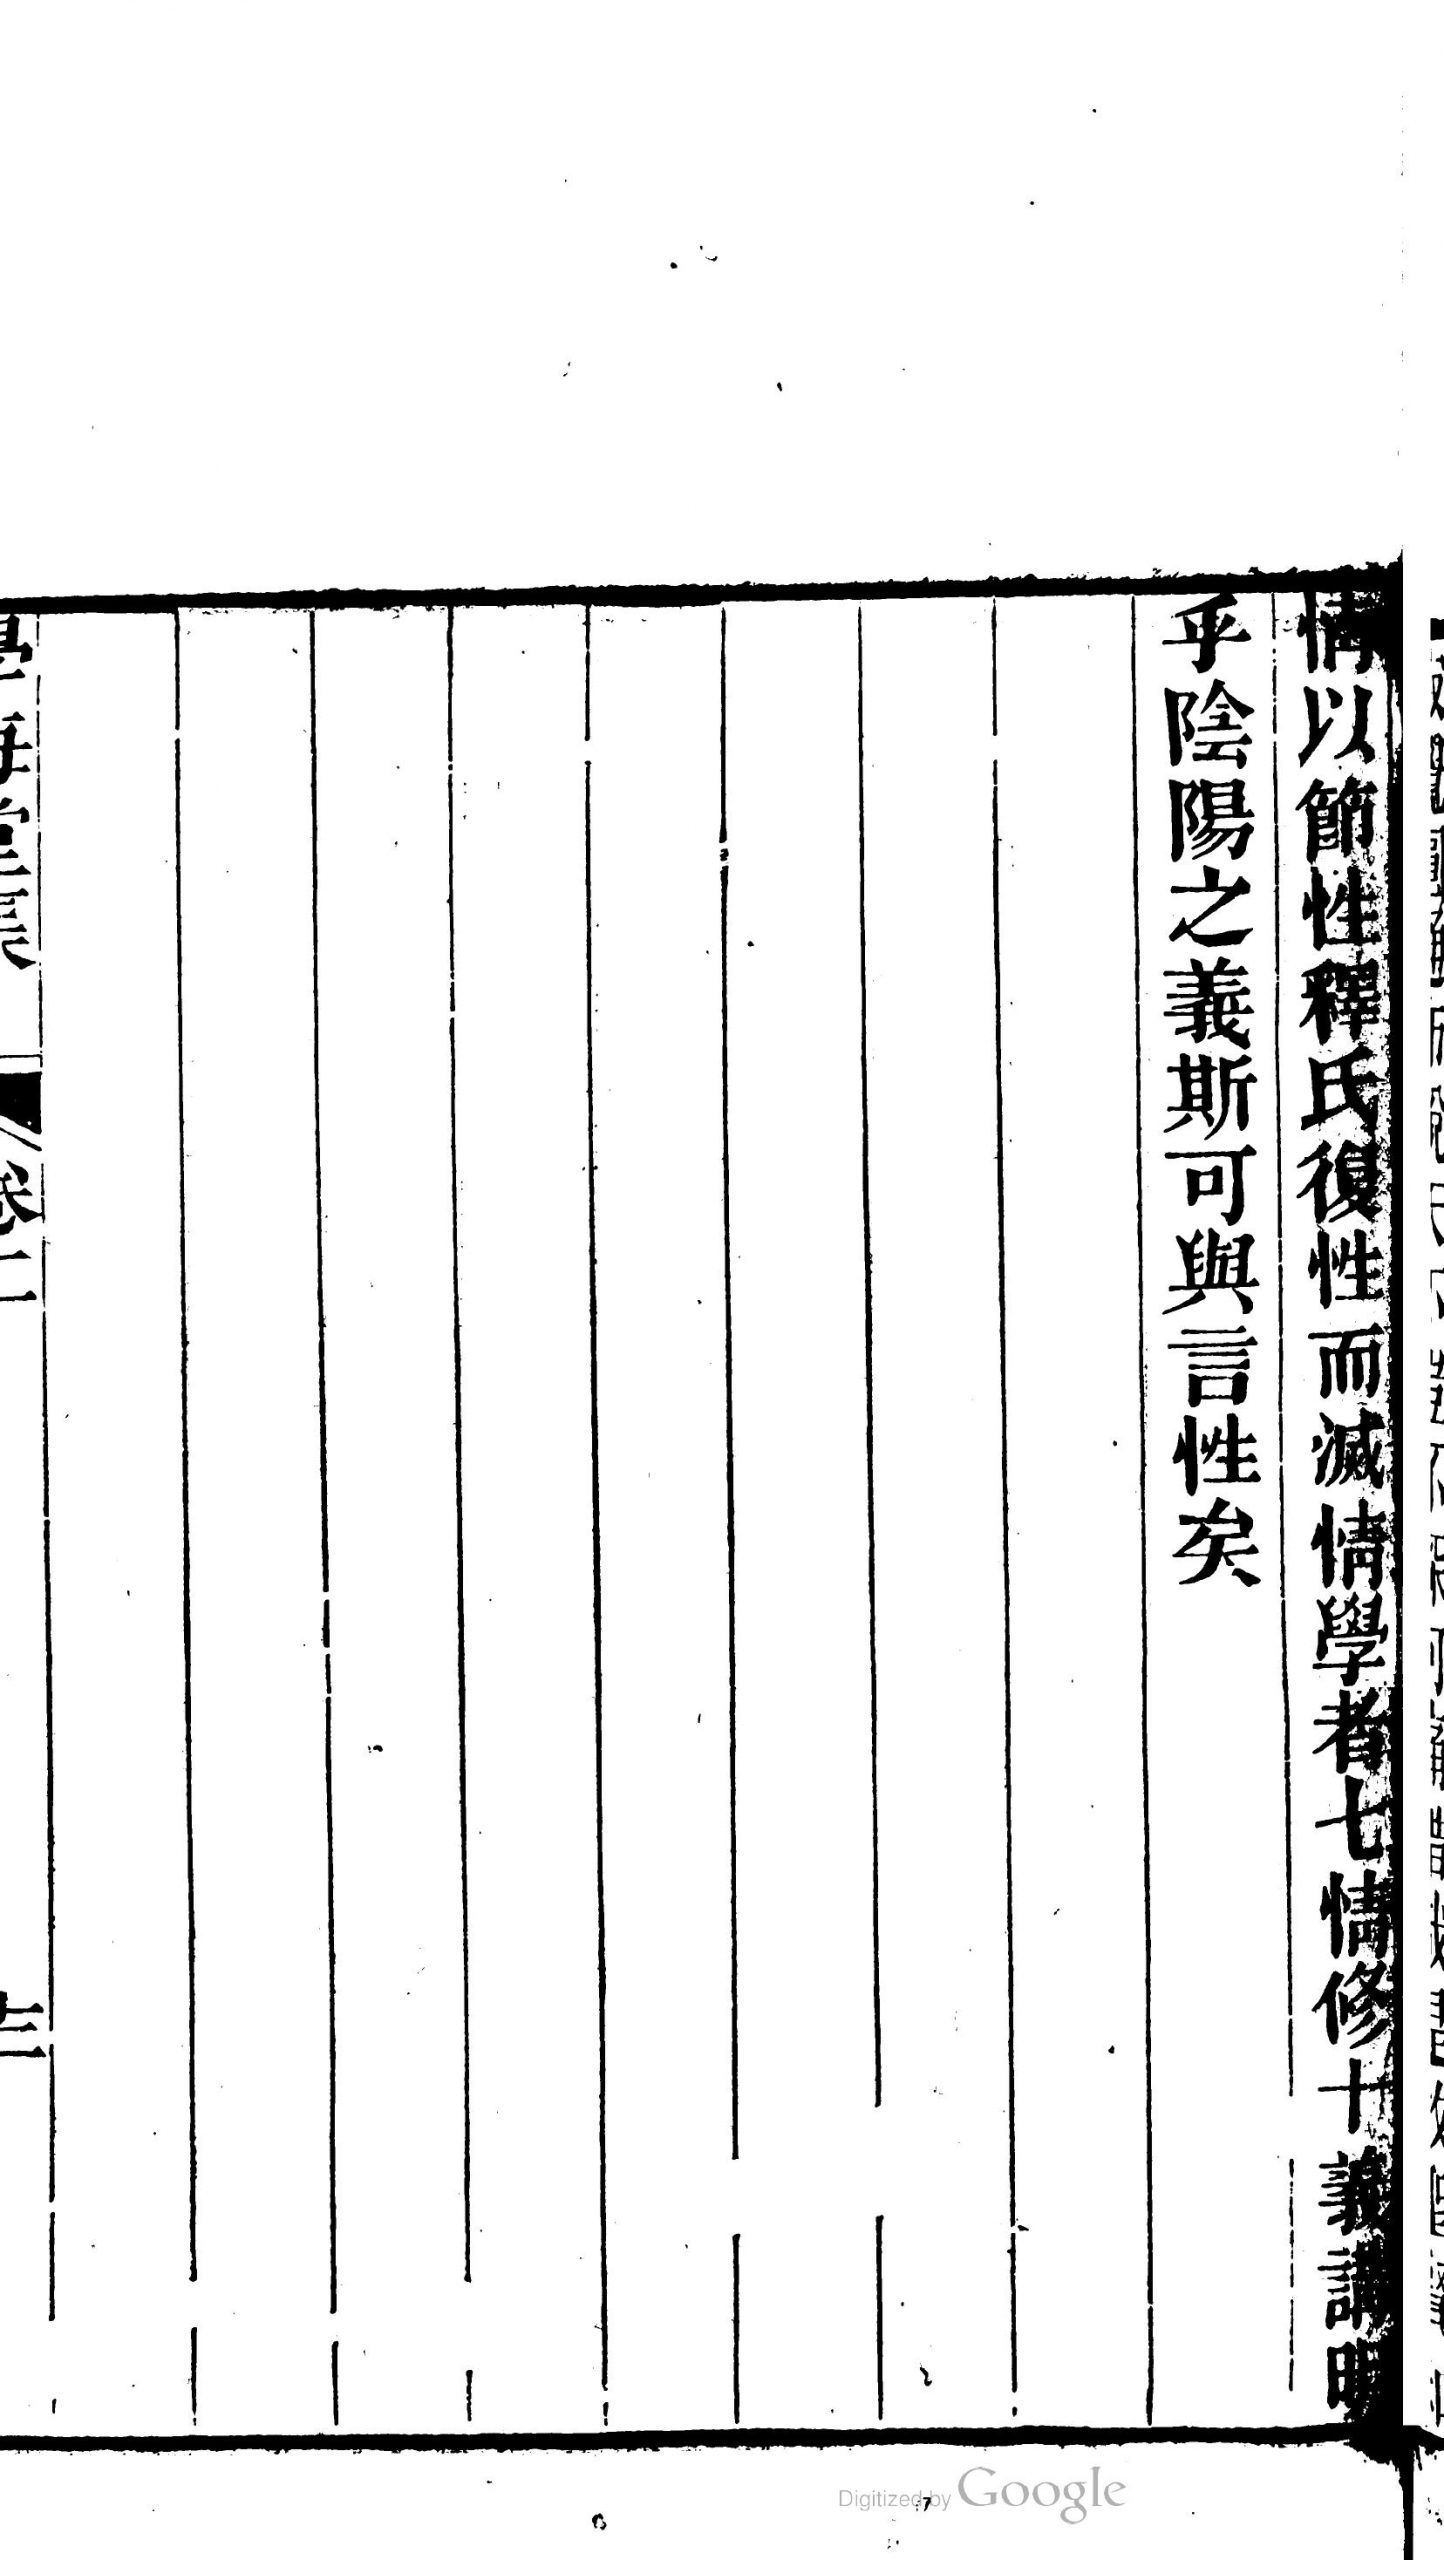 情以節性釋氏復性而滅情學者七情修十義講明
乎陰陽之義斯可與言性矣
學海堂集
卷一
十三
Digitized by Google